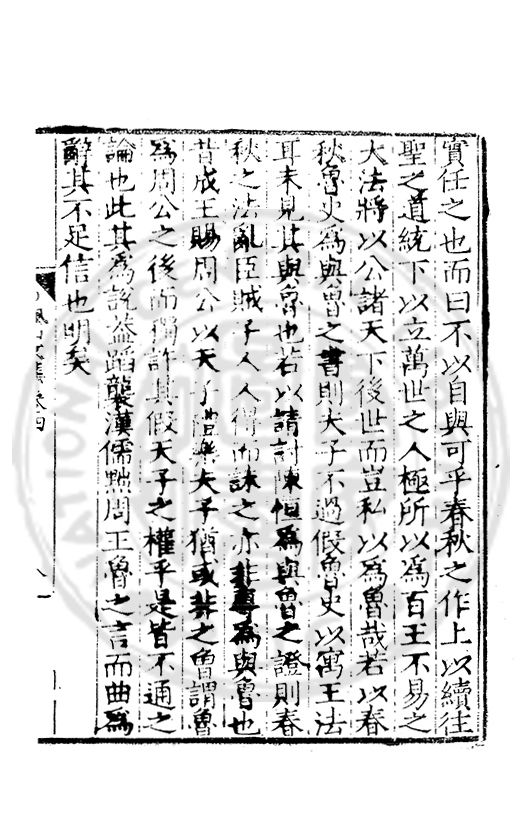 實任之也而曰不以自與可乎春秋之作上以續往
聖之道統下以立萬世之人極所以爲百王不易之
大法將以公諸天下後世而豈私以爲魯哉若以春
秋魯史爲與魯之書則夫子不過假魯史以寓王法
耳未見其與魯也若以請討陳恒爲與魯之證則春
秋之法亂臣賊子人人得而誅之亦非專爲與魯也
昔成王賜周公以天子禮樂夫子猶或非之魯謂魯
爲周公之後而獨許其假天子之權乎是皆不通之
論也此其爲說蓋蹈襲漢儒黜周王魯之言而曲爲
辭其不足信也明矣
卷四